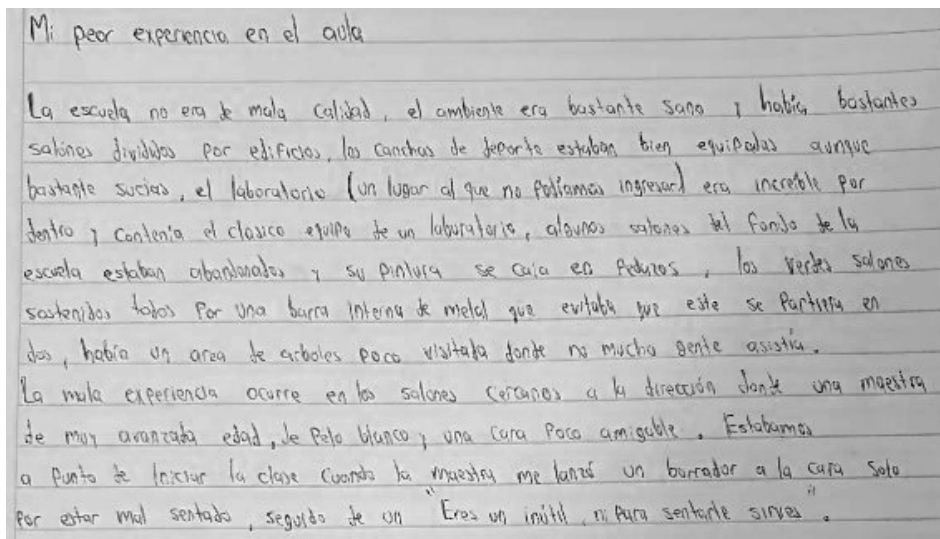 Mi peor experiencia en el aula
La escuela no era de mala calidad, el ambiente era bastante sano y había bastantes
salones divididos por edificios, las canchas de deporte estaban bien equipadas aunque
bastante sucias, el laboratorio (un lugar al que no podíamos ingresar) era increíble por
dentro y contenía el clásico equipo de un laboratorio, algunos salones del fondo de la
escuela estaban abandonados y su pintura se caía en pedazos, los verdes salones
sostenidos todos por una barra interna de metal que evitaba que este se partiera en
dos, había un area de arboles poco visitada donde no mucha gente asistía.
La mala experiencia ocurre en los salones cercanos a la dirección donde una maestra
de muy avanzada edad, de pelo blanco y una cara poco amigable. Estabamos
a punto de iniciar la clase cuando la maestra me lanzó un borrador a la cara solo
por estar mal sentado, seguido de un "Eres un inútil, ni para sentarte sirves".